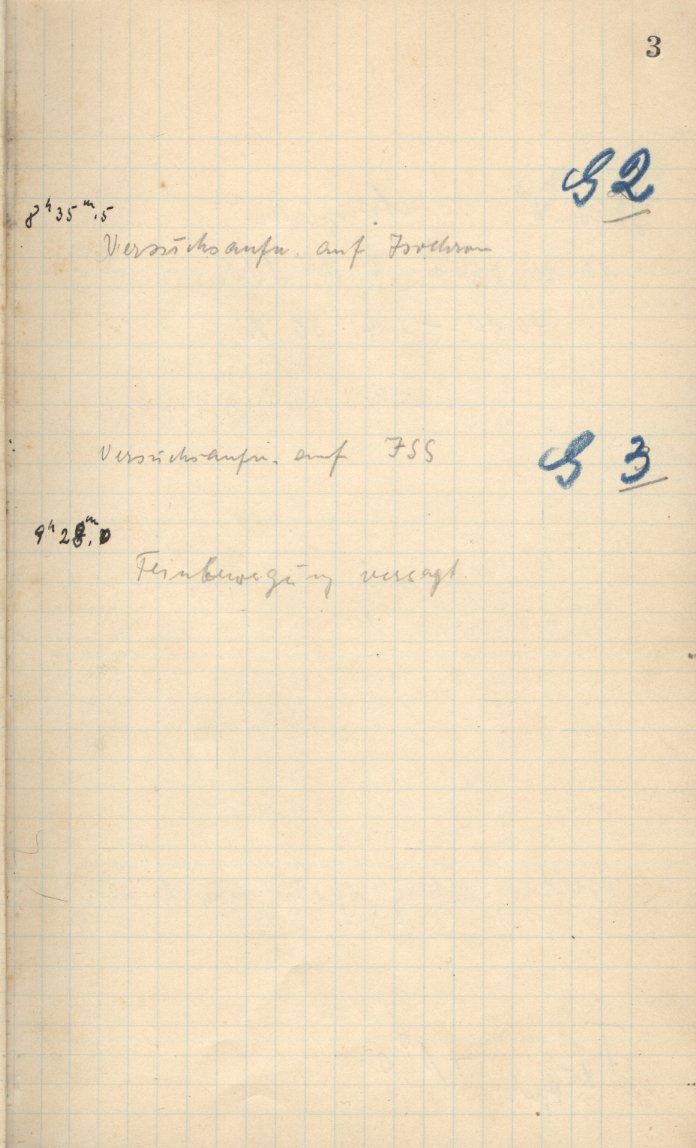 3
G 2
8ʰ35ᵐ.5
Versuchsaufn. auf Isochrom
Versuchsaufn. auf ISS
G 3
9ʰ28ᵐ.0
Feinbewegung versagt.